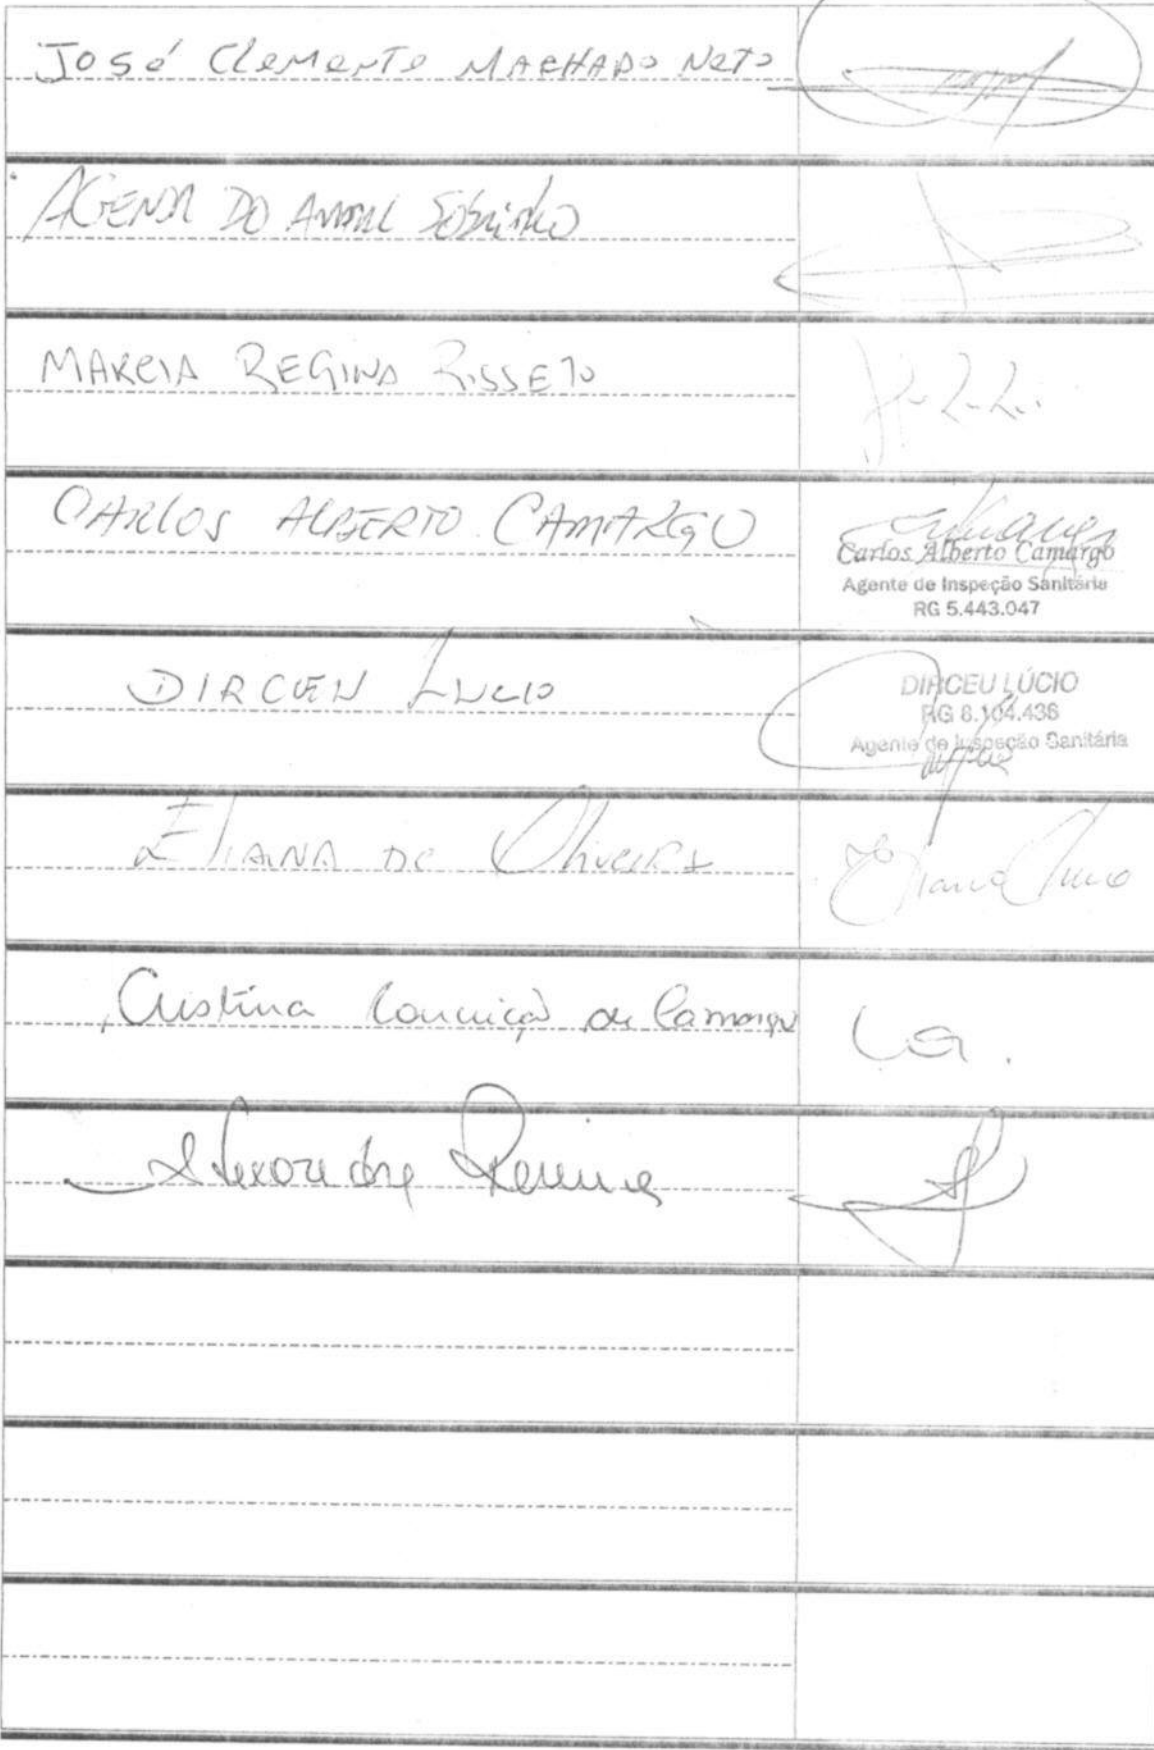 José Clemente Machado Neto
AGENOR DO AMARAL Sobrinho
MARCIA REGINA RISSETO
CARLOS ALBERTO CAMARGO
Carlos Alberto Camargo
Agente de Inspeção Sanitária
RG 5.443.047
DIRCEU LUCIO
DIRCEU LÚCIO
RG 6.104.436
Agente de Inspeção Sanitária
Eliana de Oliveira
Cristina Conceição de Camargo
Alexandre Pereira